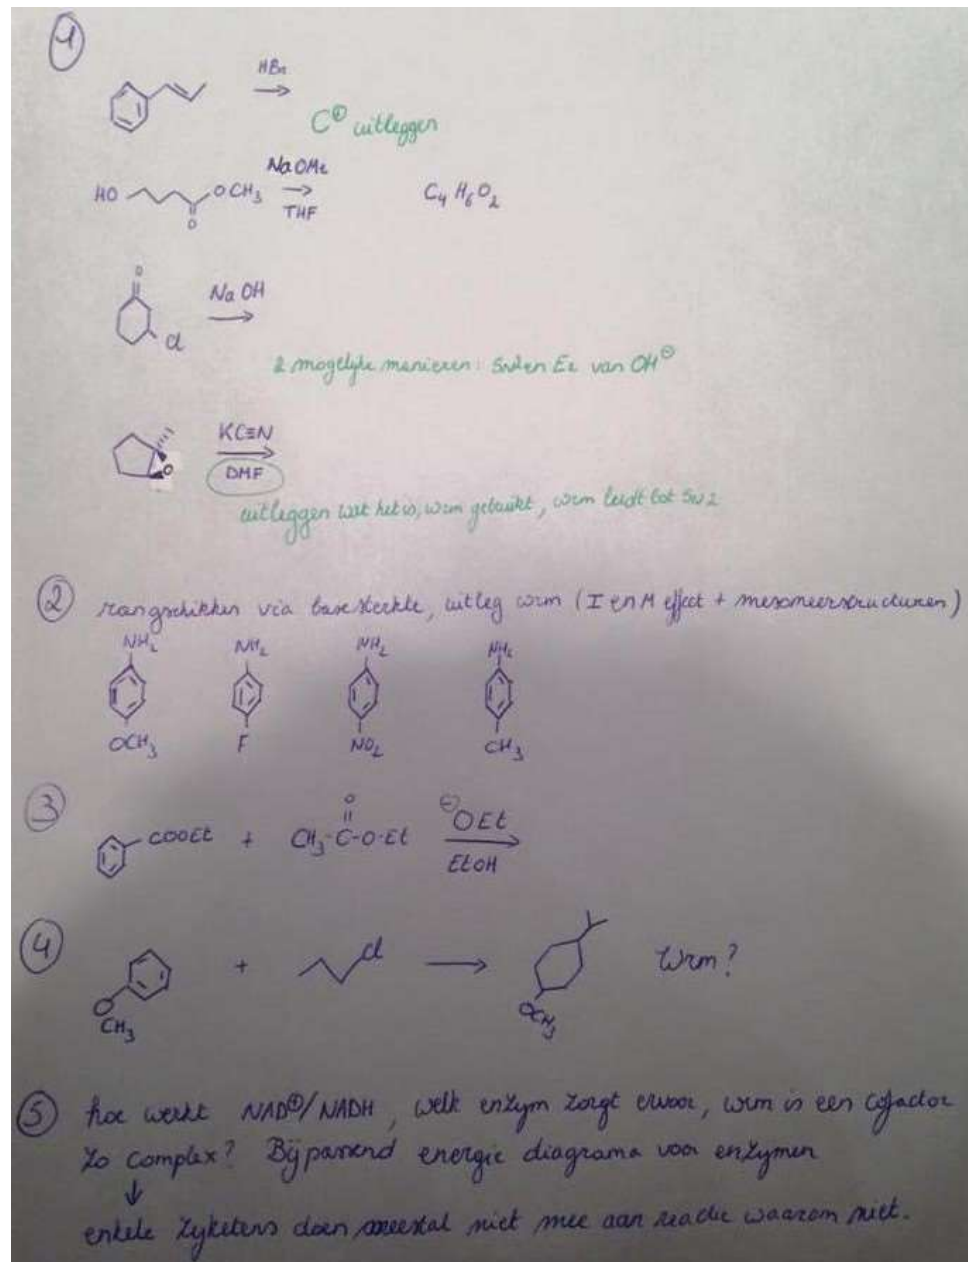 1
HBr
C⊕ uitleggen
HO OCH₃ O NaOMe THF C₄H₆O₂
O Cl NaOH
2 mogelijke manieren: SN2 en E2 van OH⊖
O KC≡N
DMF
uitleggen wat het is, wrm gebruikt, wrm leidt tot SN2
2 rangschikken via basesterkte, uitleg wrm (I en M effect + mesomeerstructuren)
NH₂ NH₂ NH₂ NH₂
OCH₃ F NO₂ CH₃
3 COOEt + CH₃-C-O-Et O ⊖OEt EtOH
4 O CH₃ + Cl OCH₃ Wrm?
5 hoe werkt NAD⊕/NADH, welk enzym zorgt ervoor, wrm is een cofactor
zo complex? Bijpassend energie diagrama voor enzymen
↓
enkele zijketens doen meestal niet mee aan reactie waarom niet.